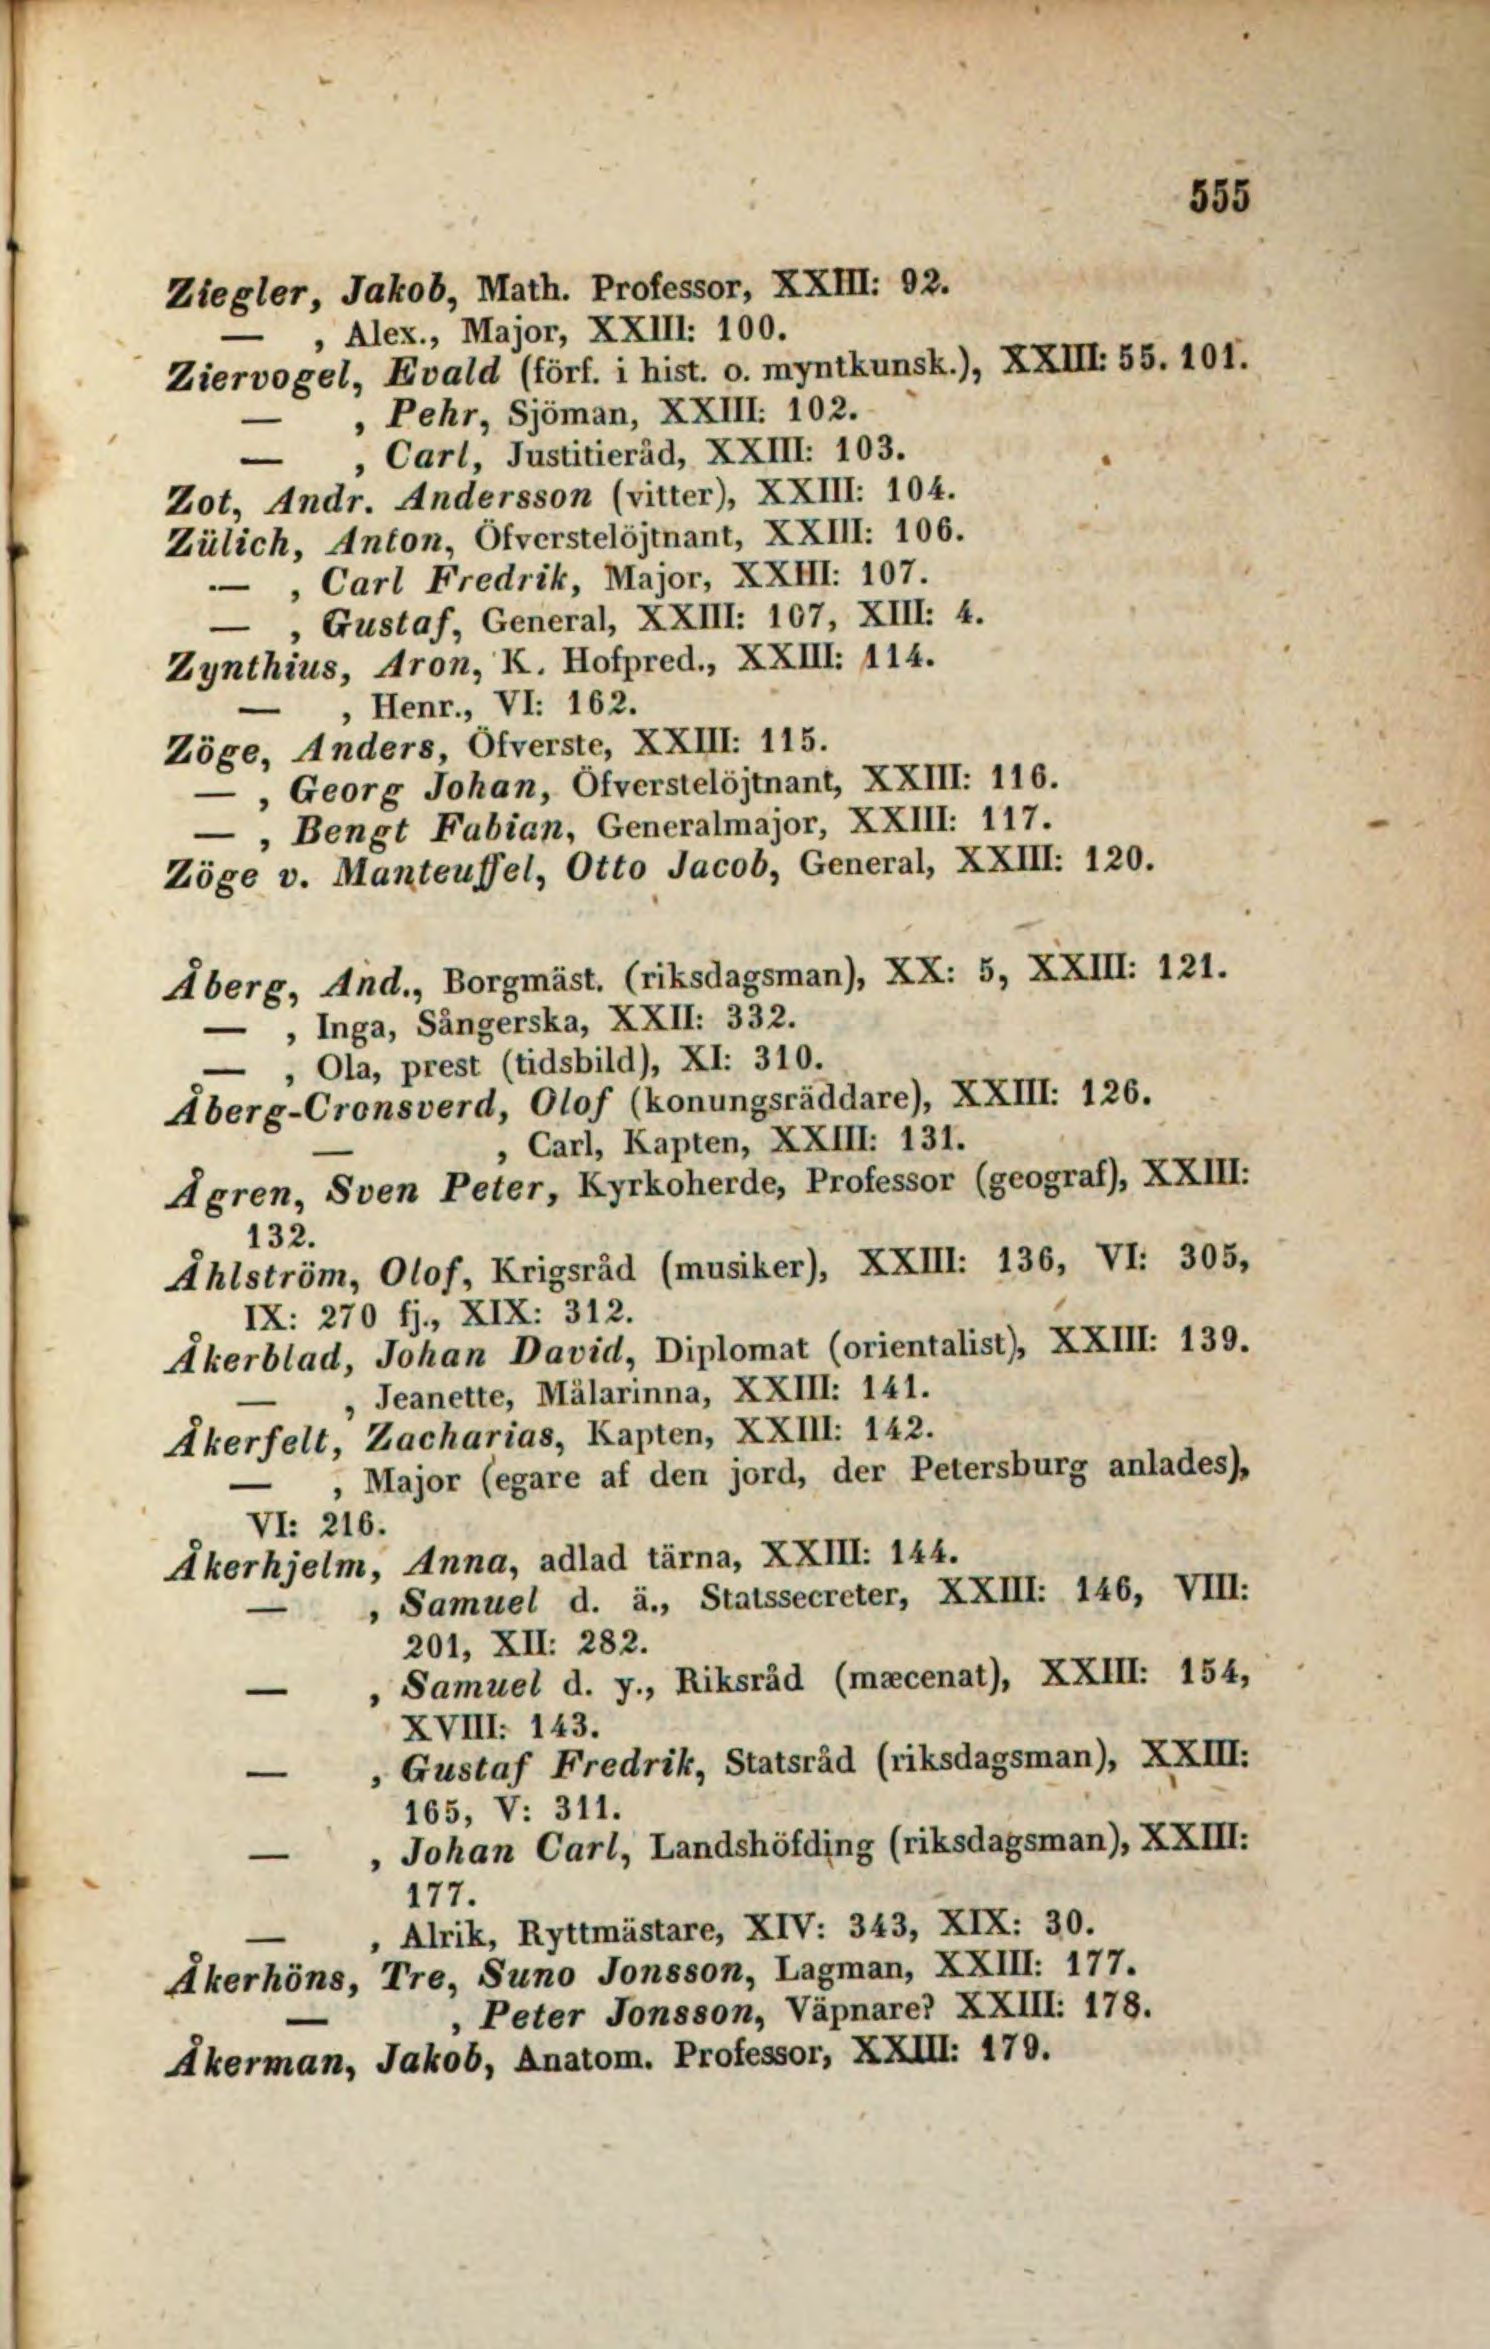 555
Ziegler, Jakob, Math. Professor, XXIII: 92.
— , Alex., Major, XXIII: 100.
Ziervogel, Evald (förf. i hist. o. myntkunsk.), XXIII: 55. 101.
— , Pehr, Sjöman, XXIII: 102.
— , Carl, Justitieråd, XXIII: 103.
Zot, Andr. Andersson (vitter), XXIII: 104.
Zülich, Anton, Öfverstelöjtnant, XXIII: 106.
— , Carl Fredrik, Major, XXIII: 107.
— , Gustaf, General, XXIII: 107, XIII: 4.
Zynthius, Aron, K. Hofpred., XXIII: 114.
— , Henr., VI: 162.
Zöge, Anders, Öfverste, XXIII: 115.
— , Georg Johan, Öfverstelöjtnant, XXIII: 116.
— , Bengt Fabian, Generalmajor, XXIII: 117.
Zöge v. Manteuffel, Otto Jacob, General, XXIII: 120.
Åberg, And., Borgmäst. (riksdagsman), XX: 5, XXIII: 121.
— , Inga, Sångerska, XXII: 332.
— , Ola, prest (tidsbild), XI: 310.
Åberg-Cronsverd, Olof (konungsräddare), XXIII: 126.
— , Carl, Kapten, XXIII: 131.
Ågren, Sven Peter, Kyrkoherde, Professor (geograf), XXIII:
132.
Åhlström, Olof, Krigsråd (musiker), XXIII: 136, VI: 305,
IX: 270 fj., XIX: 312.
Åkerblad, Johan David, Diplomat (orientalist), XXIII: 139.
— , Jeanette, Målarinna, XXIII: 141.
Åkerfelt, Zacharias, Kapten, XXIII: 142.
— , Major (egare af den jord, der Petersburg anlades),
VI: 216.
Åkerhjelm, Anna, adlad tärna, XXIII: 144.
— , Samuel d. ä., Statssecreter, XXIII: 146, VIII:
201, XII: 282.
— , Samuel d. y., Riksråd (mæcenat), XXIII: 154,
XVIII: 143.
— , Gustaf Fredrik, Statsråd (riksdagsman), XXIII:
165, V: 311.
— , Johan Carl, Landshöfding (riksdagsman), XXIII:
177.
— , Alrik, Ryttmästare, XIV: 343, XIX: 30.
Åkerhöns, Tre, Suno Jonsson, Lagman, XXIII: 177.
— , Peter Jonsson, Väpnare? XXIII: 178.
Åkerman, Jakob, Anatom. Professor, XXIII: 179.